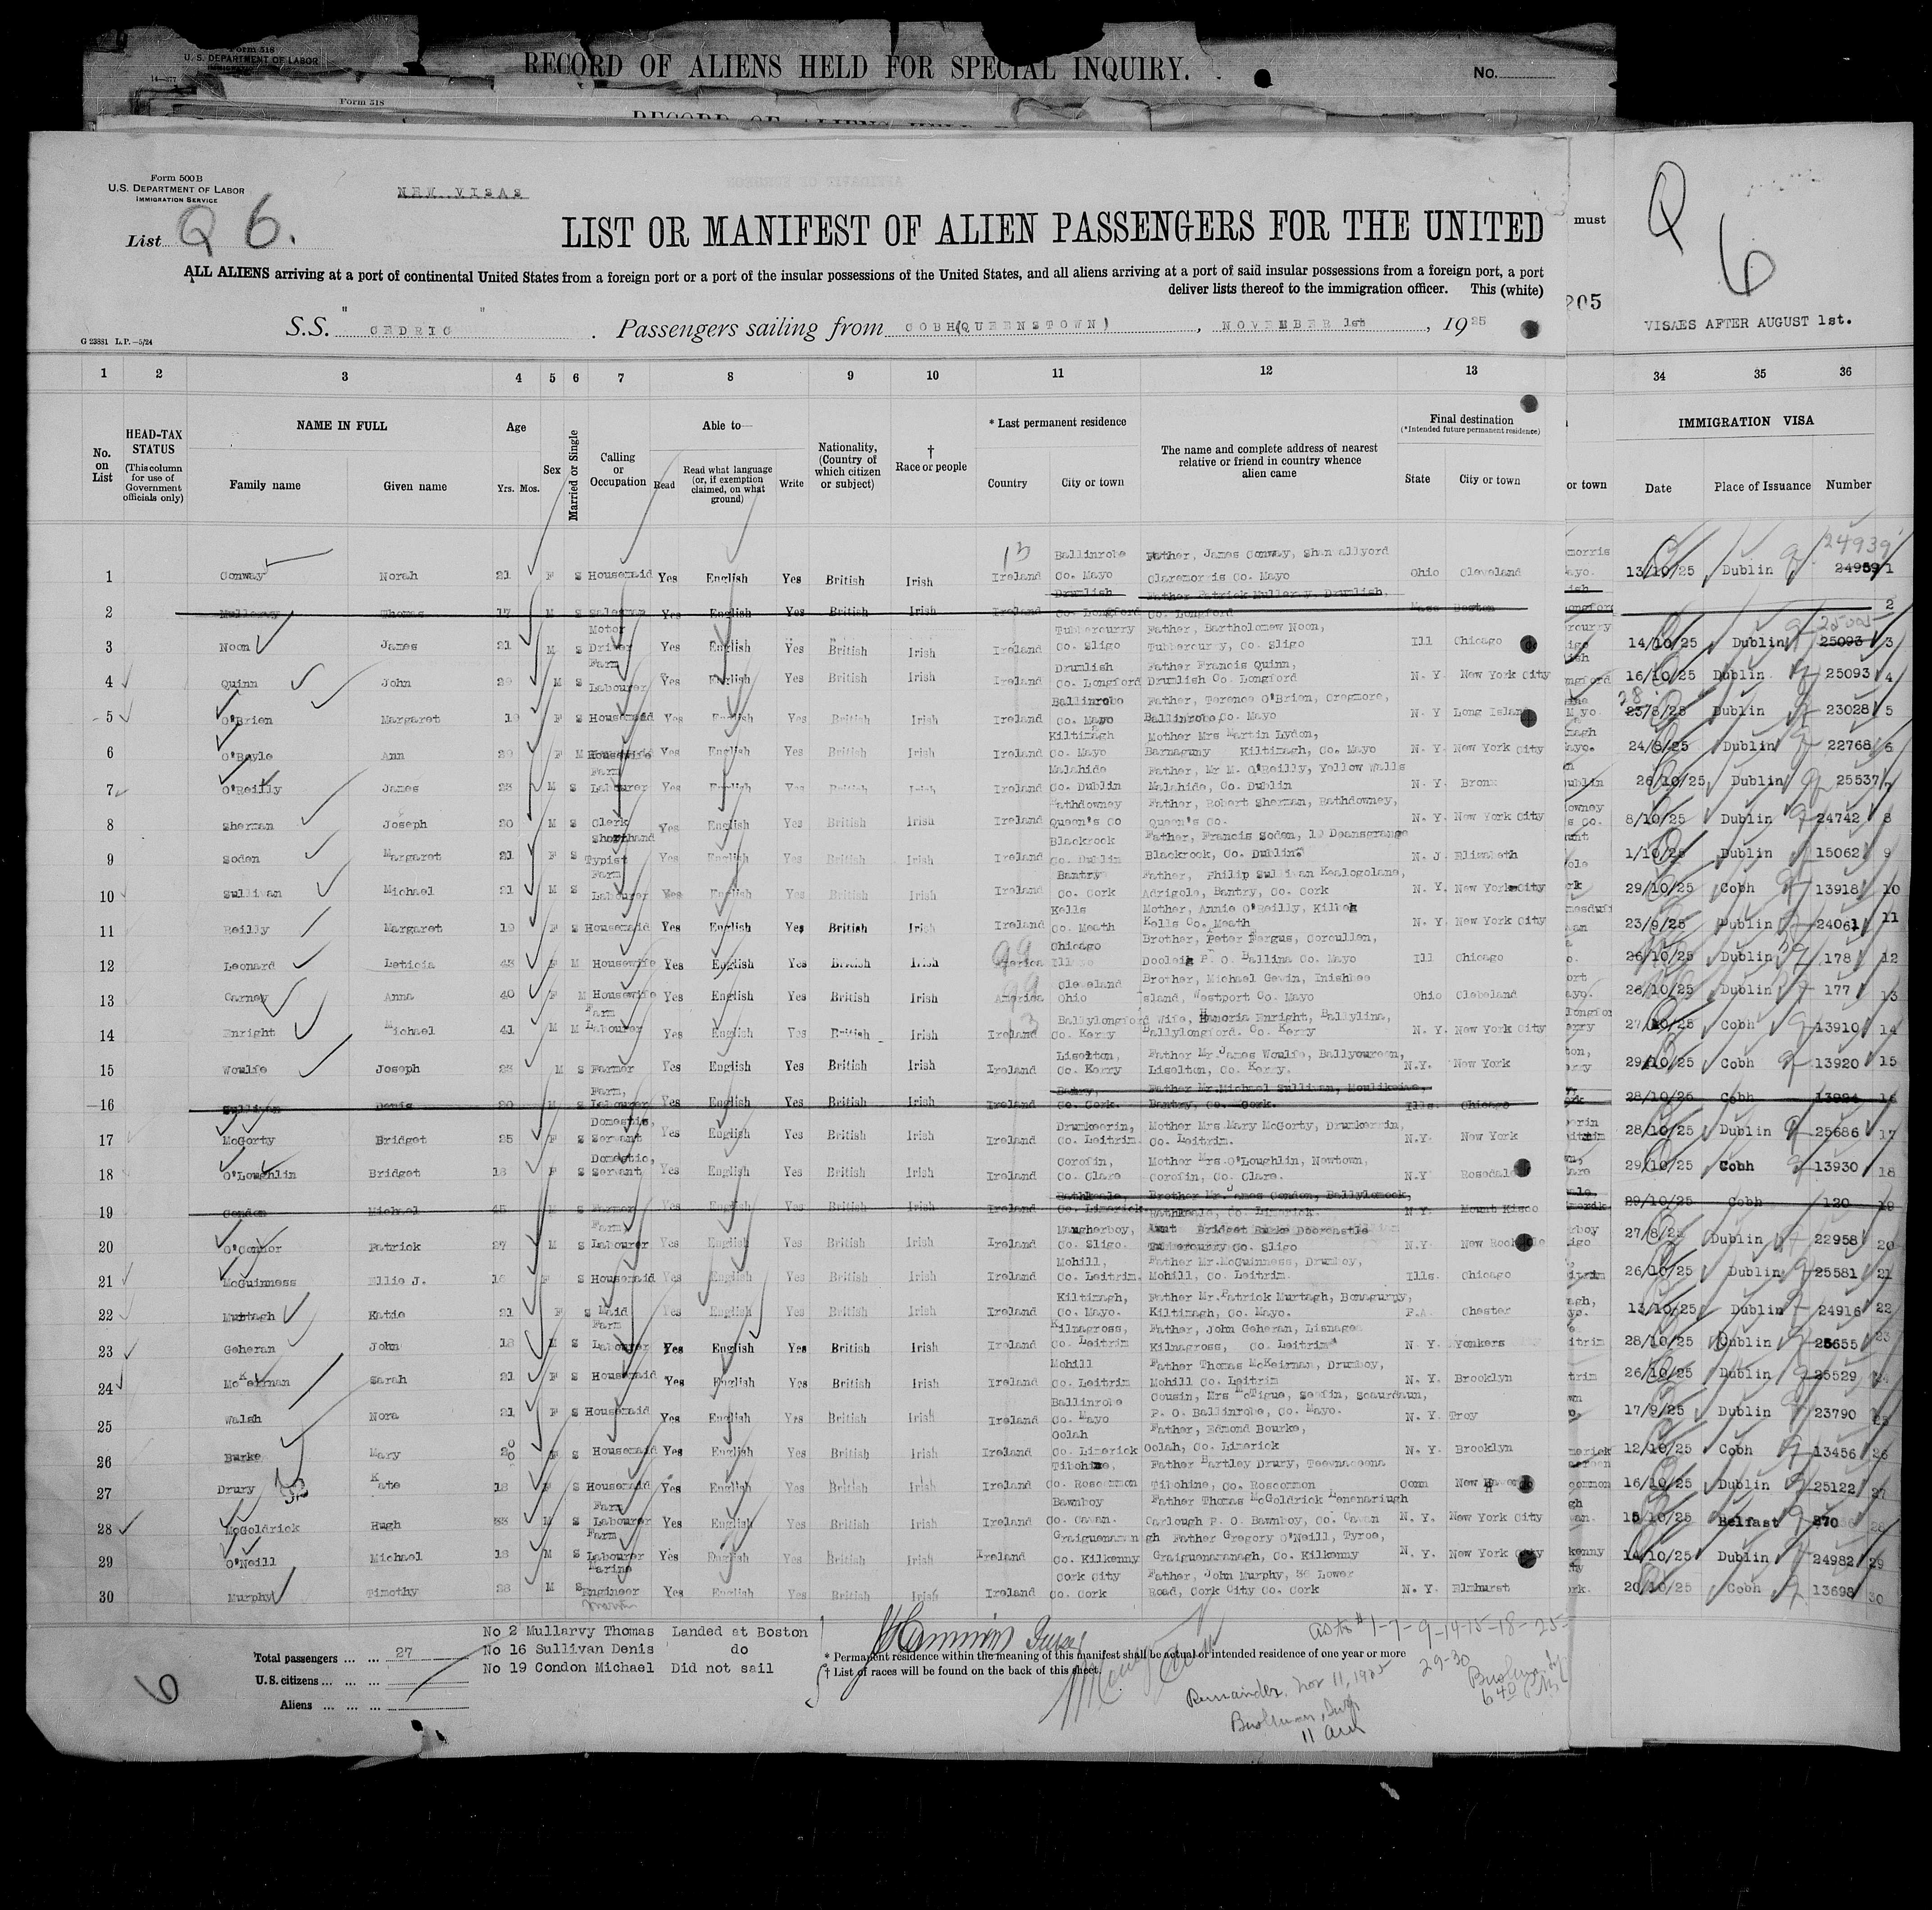 Form 518
U. S. DEPARTMENT OF LABOR
14—577
RECORD OF ALIENS HELD FOR SPECIAL INQUIRY.
No.
Form 518
Form 500 B
U.S. DEPARTMENT OF LABOR
IMMIGRATION SERVICE
NEW VISAS
List Q 6.
LIST OR MANIFEST OF ALIEN PASSENGERS FOR THE UNITED
must
Q
6
ALL ALIENS arriving at a port of continental United States from a foreign port or a port of the insular possessions of the United States, and all aliens arriving at a port of said insular possessions from a foreign port, a port
deliver lists thereof to the immigration officer. This (white)
205
S.S. " CEDRIC " . Passengers sailing from COBH(QUEENSTOWN) , NOVEMBER 1st , 1925
VISAES AFTER AUGUST 1st.
G 23881 L.P.—5/24
1 2 3 4 5 6 7 8 9 10 11 12 13 34 35 36
No. on List
HEAD-TAX STATUS
(This column for use of Government officials only)
NAME IN FULL
Family name Given name
Age
Yrs. Mos.
Sex
Married or Single
Calling or Occupation
Able to—
Read
Read what language (or, if exemption claimed, on what ground)
Write
Nationality, (Country of which citizen or subject)
† Race or people
* Last permanent residence
Country City or town
The name and complete address of nearest relative or friend in country whence alien came
Final destination
(*Intended future permanent residence)
State City or town
or town
IMMIGRATION VISA
Date Place of Issuance Number
13 Ballinrobe Father, James Conway, Shanallyord 24939
1 Conway Norah 21 F S Housemaid Yes English Yes British Irish Ireland Co. Mayo Claremorris Co. Mayo Ohio Cleveland 13/10/25 Dublin 24959 1
Drumlish Father Patrick Mullarvy, Drumlish
2 Mullarvy Thomas 17 M S Salesman Yes English Yes British Irish Ireland Co. Longford Co. Longford Mass Boston 2
Motor Tubbercurry Father, Bartholomew Noon, 25005
3 Noon James 21 M S Driver Yes English Yes British Irish Ireland Co. Sligo Tubbercurry, Co. Sligo Ill Chicago 14/10/25 Dublin 25093 3
Farm Drumlish Father Francis Quinn,
4 Quinn John 29 M S Labourer Yes English Yes British Irish Ireland Co. Longford Drumlish Co. Longford N. Y. New York City 16/10/25 Dublin 25093 4
Ballinrobe Father, Terence O'Brien, Cregmore,
5 O'Brien Margaret 19 F S Housemaid Yes English Yes British Irish Ireland Co. Mayo Ballinrobe, Co. Mayo N. Y Long Island 28/8/25 Dublin 23028 5
Kiltimagh Mother Mrs Martin Lydon,
6 O'Boyle Ann 29 F M Housewife Yes English Yes British Irish Ireland Co. Mayo Barnaguny Kiltimagh, Co. Mayo N. Y. New York City 24/8/25 Dublin 22768 6
Farm Malahide Father, Mr M. O'Reilly, Yellow Walls
7 O'Reilly James 23 M S Labourer Yes English Yes British Irish Ireland Co. Dublin Malahide, Co. Dublin N. Y. Bronx 26/10/25 Dublin 25537 7
Rathdowney Father, Robert Sherman, Rathdowney,
8 Sherman Joseph 20 M S Clerk Yes English Yes British Irish Ireland Queen's Co Queen's Co. N. Y. New York City 8/10/25 Dublin 24742 8
Shorthand Blackrock Father, Francis Soden, 19 Deansgrange
9 Soden Margaret 21 F S Typist Yes English Yes British Irish Ireland Co. Dublin Blackrock, Co. Dublin. N. J. Elizabeth 1/10/25 Dublin 15062 9
Farm Bantry Father, Philip Sullivan Kealogolane,
10 Sullivan Michael 21 M S Labourer Yes English Yes British Irish Ireland Co. Cork Adrigole, Bantry, Co. Cork N. Y. New York City 29/10/25 Cobh 13918 10
Kells Mother, Annie O'Reilly, Kilbeg
11 Reilly Margaret 19 F S Housemaid Yes English Yes British Irish Ireland Co. Meath Kells Co. Meath N. Y. New York City 23/9/25 Dublin 24061 11
99 Chicago Brother, Peter Fergus, Corcullen,
12 Leonard Leticia 43 F M Housewife Yes English Yes British Irish America Ill Dooleig P. O. Ballina Co. Mayo Ill Chicago 26/10/25 Dublin 178 12
99 Cleveland Brother, Michael Gevin, Inishbee
13 Carney Anna 40 F M Housewife Yes English Yes British Irish America Ohio Island, Westport Co. Mayo Ohio Clebeland 26/10/25 Dublin 177 13
Farm 13 Ballylongford Wife, Hanoria Enright, Ballyline,
14 Enright Michael 41 M M Labourer Yes English Yes British Irish Ireland Co. Kerry Ballylongford. Co. Kerry N. Y. New York City 27/10/25 Cobh 13910 14
Liselton, Father Mr. James Woulfe, Ballyoureen,
15 Woulfe Joseph 23 M S Farmer Yes English Yes British Irish Ireland Co. Kerry Liselton, Co. Kerry. N.Y. New York 29/10/25 Cobh 13920 15
Farm, Father Mr. Michael Sullivan,
16 Sullivan Denis 20 M S Labourer Yes English Yes British Irish Ireland Co. Cork. Bantry, Co. Cork. Ills. Chicago 28/10/25 Cobh 13924 16
Domestic, Drumkeerin, Mother Mrs. Mary McGorty, Drumkeerin,
17 McGorty Bridget 25 F S Servant Yes English Yes British Irish Ireland Co. Leitrim. Co. Leitrim. N.Y. New York 28/10/25 Dublin 25686 17
Domestic, Corofin, Mother Mrs. O'Loughlin, Newtown,
18 O'Loughlin Bridget 18 F S Servant Yes English Yes British Irish Ireland Co. Clare Corofin, Co. Clare. N.Y Rosedale 29/10/25 Cobh 13930 18
Rathkeale, Brother Mr. James Condon, Ballylomock,
19 Condon Michael 45 M S Farmer Yes English Yes British Irish Ireland Co. Limerick Rathkeale, Co. Limerick. N.Y. Mount Kisco 29/10/25 Cobh 120 19
Farm Maugherboy, Aunt Bridget Burke Doorcastle
20 O'Connor Patrick 27 M S Labourer Yes English Yes British Irish Ireland Co. Sligo. Tubbercurry Co. Sligo N.Y. New Rochelle 27/8/25 Dublin 22958 20
Mohill, Father Mr. McGuinness, Drumboy,
21 McGuinness Ellie J. 18 F S Housemaid Yes English Yes British Irish Ireland Co. Leitrim. Mohill, Co. Leitrim. Ills. Chicago 26/10/25 Dublin 25581 21
Kiltimagh, Father Mr. Patrick Murtagh, Bonagurny,
22 Murtagh Katie 21 F S Maid Yes English Yes British Irish Ireland Co. Mayo. Kiltimagh, Co. Mayo. P.A. Chester 13/10/25 Dublin 24916 22
Farm Kilnagross, Father, John Geheran, Lisnagea
23 Geheran John 18 M S Labourer Yes English Yes British Irish Ireland Co. Leitrim Kilnagross, Co. Leitrim N. Y. Yonkers 28/10/25 Dublin 25655 23
Mohill Father Thomas McKeirnan, Drumboy,
24 McKeirnan Sarah 21 F S Housemaid Yes English Yes British Irish Ireland Co. Leitrim Mohill Co. Leitrim N. Y. Brooklyn 26/10/25 Dublin 25529 24
Ballinrobe Cousin, Mrs McTigue,
25 Walsh Nora 21 F S Housemaid Yes English Yes British Irish Ireland Co. Mayo P. O. Ballinrobe, Co. Mayo. N. Y. Troy 17/9/25 Dublin 23790 25
Oolah Father, Edmond Bourke,
26 Burke Mary 20 F S Housemaid Yes English Yes British Irish Ireland Co. Limerick Oolah, Co. Limerick N. Y. Brooklyn 12/10/25 Cobh 13456 26
Tibohine, Father Bartley Drury, Teevnaceena
27 Drury Kate 18 F S Housemaid Yes English Yes British Irish Ireland Co. Roscommon Tibohine, Co. Roscommon Conn New Haven 16/10/25 Dublin 25122 27
Farm Bawnboy Father Thomas McGoldrick
28 McGoldrick Hugh 33 M S Labourer Yes English Yes British Irish Ireland Co. Cavan. Carlough P. O. Bawnboy, Co. Cavan N. Y. New York City 15/10/25 Belfast 870 28
Farm Graiguenamanagh Father Gregory O'Neill, Tyroe,
29 O'Neill Michael 18 M S Labourer Yes English Yes British Irish Ireland Co. Kilkenny Graiguenamanagh, Co. Kilkenny N. Y. New York City 14/10/25 Dublin 24982 29
Marine Cork City Father, John Murphy, 56 Lower
30 Murphy Timothy 28 M S Engineer Yes English Yes British Irish Ireland Co. Cork Road, Cork City Co. Cork N. Y. Elmhurst 20/10/25 Cobh 13698 30
No 2 Mullarvy Thomas Landed at Boston
No 16 Sullivan Denis do
No 19 Condon Michael Did not sail
Total passengers ... ... 27
U.S. citizens ... ... ...
Aliens ... ... ...
6
* Permanent residence within the meaning of this manifest shall be actual or intended residence of one year or more
† List of races will be found on the back of this sheet.
as to # 1-7-9-14-15-18-25-
29-30
Remainder, Nov 11, 1925
11 am